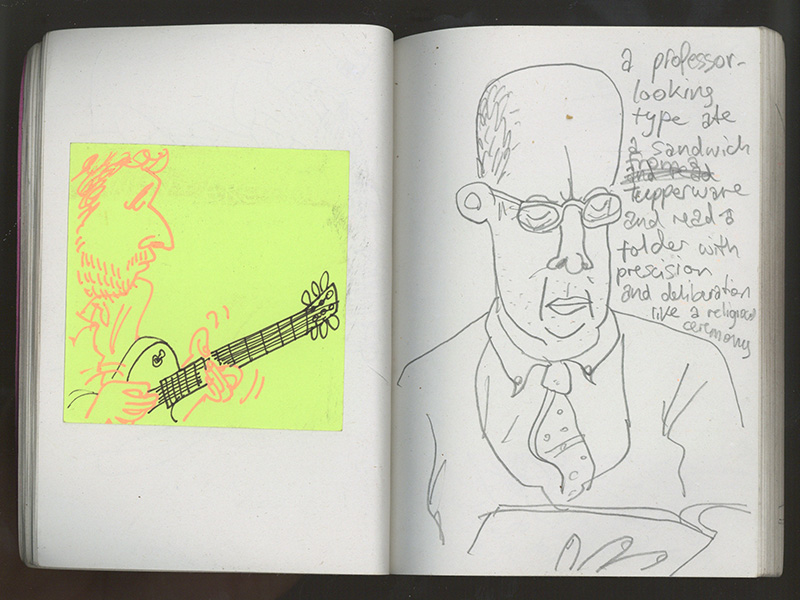 a professor-
looking
type ate
a sandwich
from a
tupperware
and read a
folder with
prescision
and deliberation
like a religious
ceremony